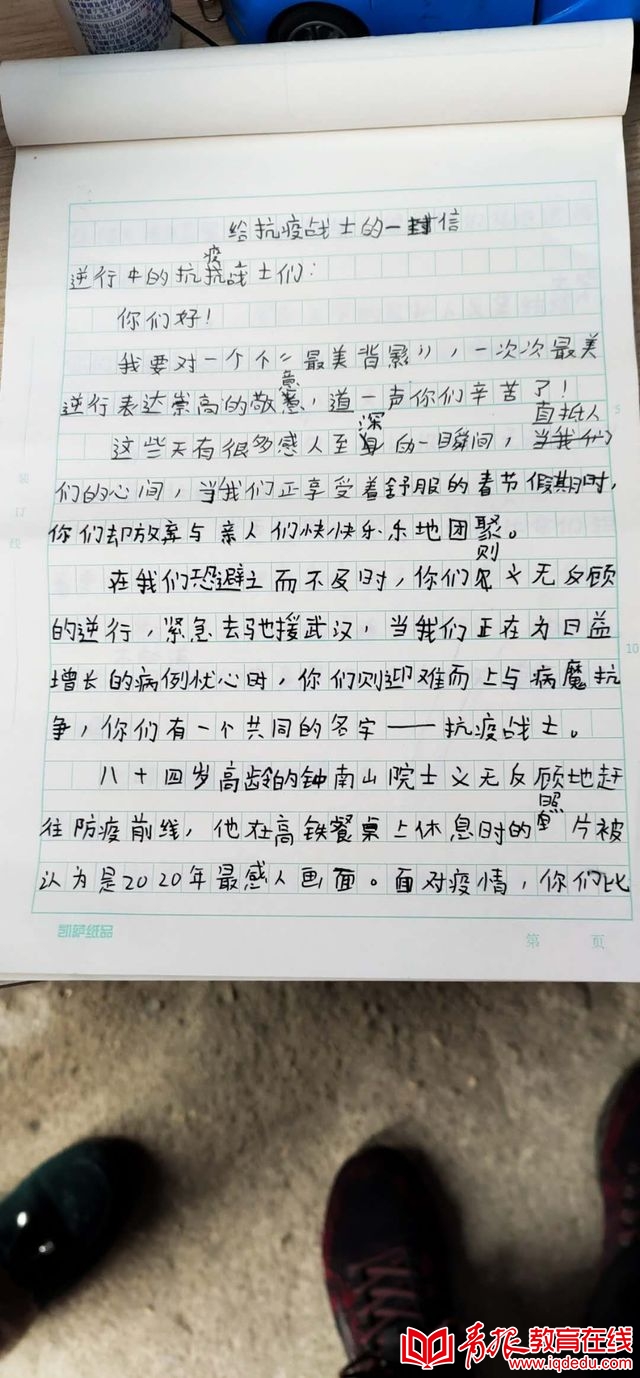 给抗疫战士的一封信
疫
逆行中的抗战士们：
你们好！
我要对一个个“最美背影”，一次次最美
意
逆行表达崇高的敬，道一声你们辛苦了！
深 直抵人
这些天有很多感人至的一瞬间，当我们
们的心间，当我们正享受着舒服的春节假期时，
你们却放弃与亲人们快快乐乐地团聚。
则
在我们恐避之而不及时，你们义无反顾
的逆行，紧急去驰援武汉，当我们正在为日益
增长的病例忧心时，你们则迎难而上与病魔抗
争，你们有一个共同的名字——抗疫战士。
八十四岁高龄的钟南山院士义无反顾地赶
照
往防疫前线，他在高铁餐桌上休息时的片被
认为是2020年最感人画面。面对疫情，你们比
凯萨纸品
第 页
装
订
线
5
10
青报教育在线
www.iqdedu.com